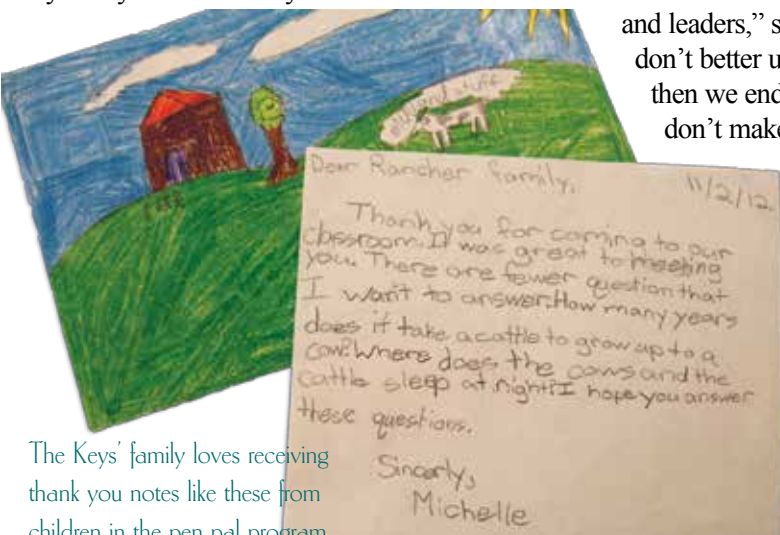 and leaders,”
don’t better
then we end
don’t make
Dear Rancher family,
11/2/12
Thank you for coming to our
classroom. It was great to meeting
you. There are fewer question that
I want to answer. How many years
does it take a cattle to grow up to a
cow? Where does the cows and the
cattle sleep at night? I hope you answer
these questions.
Sincerly,
Michelle
The Keys’ family loves receiving
thank you notes like these from
children in the pen pal program